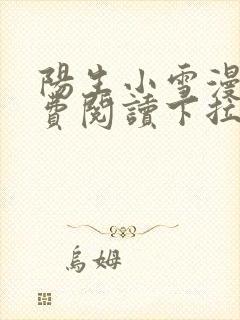 陽生小雪漫
費閱讀下拉
烏姆